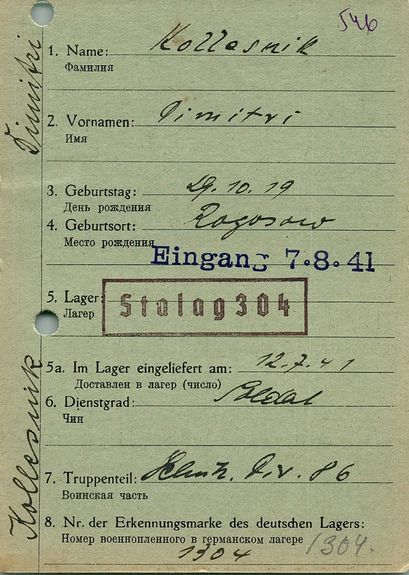 546
1. Name: Kollesnik
Фамилия
2. Vornamen: Dimitri
Имя
3. Geburtstag: 29.10.19
День рождения
4. Geburtsort: Rogosow
Место рождения
Eingang 7.8.41
5. Lager: Stalag 304
Лагер
5a. Im Lager eingeliefert am: 12.7.41
Доставлен в лагер (число)
6. Dienstgrad: Soldat
Чин
7. Truppenteil: Div. 86
Воинская часть
8. Nr. der Erkennungsmarke des deutschen Lagers:
Номер военнопленного в германском лагере
1304
1304.
Kollesnik Dimitri